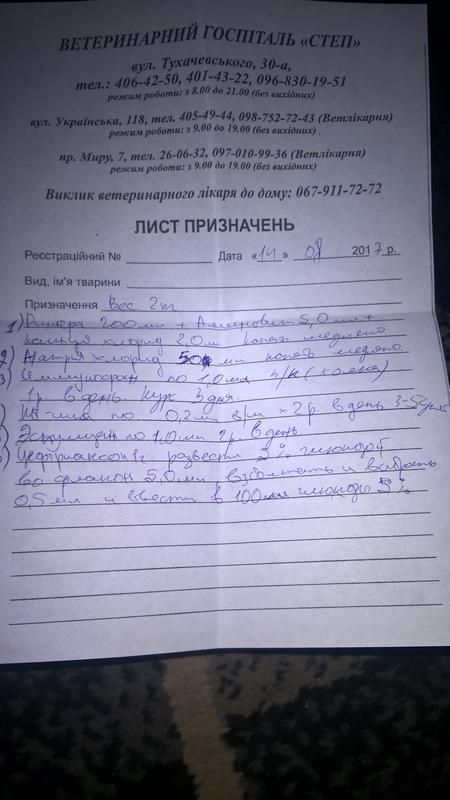 ВЕТЕРИНАРНИЙ ГОСПІТАЛЬ «СТЕП»
вул. Тухачевського, 30-а,
тел.: 406-42-50, 401-43-22, 096-830-19-51
режим роботи: з 8.00 до 21.00 (без вихідних)
вул. Українська, 118, тел. 405-49-44, 098-752-72-43 (Ветлікарня)
режим роботи: з 9.00 до 19.00 (без вихідних) .
пр. Миру, 7, тел. 26-06-32, 097-010-99-36 (Ветлікарня)
режим роботи: з 9.00 до 19.00 (без вихідних)
Виклик ветеринарного лікаря до дому: 067-911-72-72
ЛИСТ ПРИЗНАЧЕНЬ
Реєстраційний № Дата «14» 08 2017 р.
Вид, ім'я тварини
Призначення Вес 2кг
1) Рингера 200мл + 5,0мл +
кальция хлорид 2,0мл капать медленно
2) Натрия хлорид 50 мл капать медленно
3) по 1,0мл п/к (холка)
1р. в день. Курс 3 дня.
по 0,2мл в/м × 2р. в день 3-5 дн
по 1,0мл 2р. в день
Цефтриаксон 1г. развести 5% глюкозой
во флакон 5,0мл взболтать и выбрать
0,5мл и ввести в 100мл глюкозы 5%